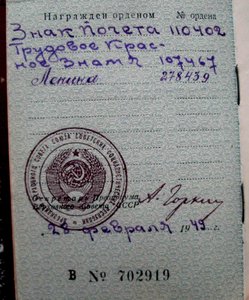 Награжден орденом № ордена
Знак Почета 110402
Трудовое Крас-
ное Знамя 107467
Ленина 278439
Секретарь Президиума
Верховного Совета СССР
А. Горкин
28 февраля 1949 г.
В № 702919